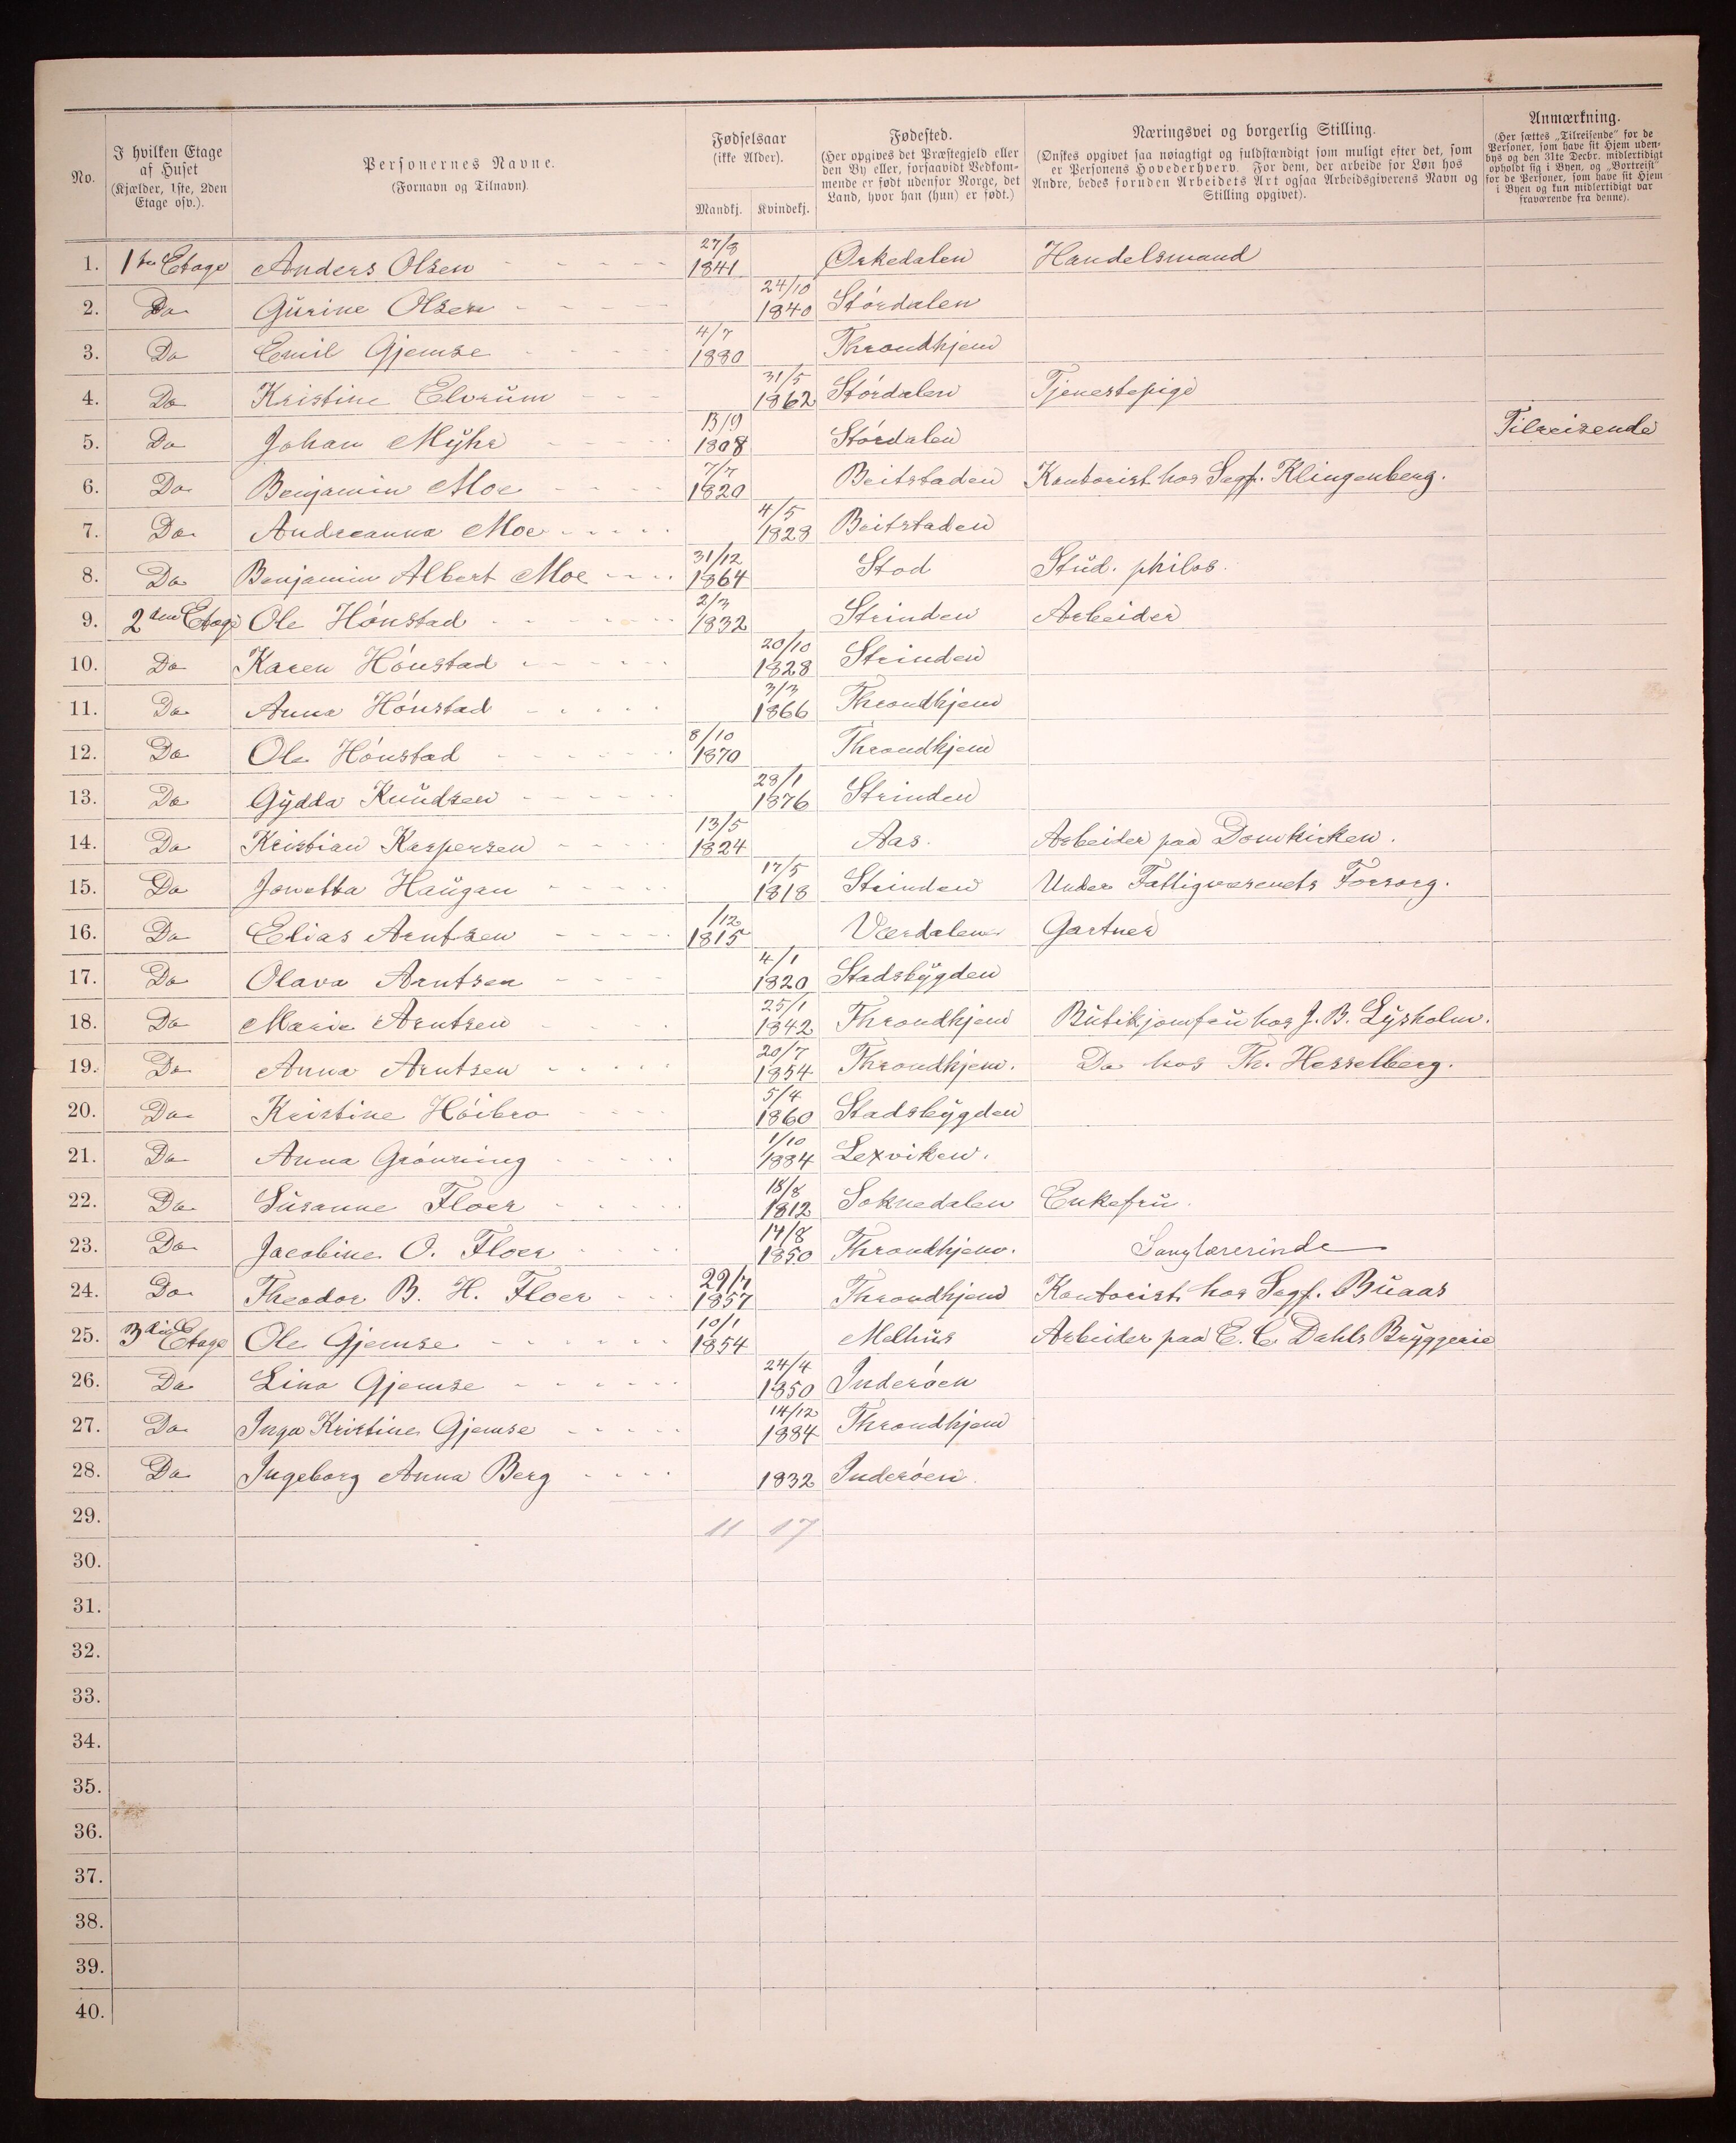 No.
I hvilken Etage af Huset (Kjælder, 1ste, 2den Etage osv.).
Personernes Navne. (Fornavn og Tilnavn).
Fødselsaar (ikke Alder).
Mandkj. Kvindekj.
Fødested. (Her opgives det Præstegjeld eller den By eller, forsaavidt Vedkommende er født udenfor Norge, det Land, hvor han (hun) er født.)
Næringsvei og borgerlig Stilling. (Ønskes opgivet saa nøiagtigt og fuldstændigt som muligt efter det, som er Personens Hovederhverv. For dem, der arbeide for Løn hos Andre, bedes foruden Arbeidets Art ogsaa Arbeidsgiverens Navn og Stilling opgivet).
Anmærkning. (Her sættes „Tilreisende" for de Personer, som have sit Hjem udenbys og den 31te Decbr. midlertidigt opholdt sig i Byen, og „Bortreist" for de Personer, som have sit Hjem i Byen og kun midlertidigt var fraværende fra denne).
1. 1ste Etage Anders Olsen 27/8 1841 Orkedalen Handelsmand
2. Do Gurine Olsen 24/10 1840 Stórdalen
3. Do Emil Gjemse 4/7 1880 Throndhjem
4. Do Kristine Elvrum 31/5 1862 Stórdalen Tjenestepige
5. Do Johan Myhr 13/9 1808 Stórdalen Tilreisende
6. Do Benjamin Moe 7/7 1820 Beitstaden Kontorist hos Sagf. Klingenberg.
7. Do Andreanna Moe 4/5 1828 Beitstaden
8. Do Benjamin Albert Moe 31/12 1864 Stod Stud. philos.
9. 2den Etage Ole Hónstad 2/3 1832 Strinden Arbeider
10. Do Karen Hónstad 20/10 1828 Strinden
11. Do Anna Hónstad 3/3 1866 Throndhjem
12. Do Ole Hónstad 8/10 1870 Throndhjem
13. Do Gydda Knudsen 28/1 1876 Strinden
14. Do Kristian Kaspersen 13/5 1824 Aas. Arbeider paa Domkirken.
15. Do Jonetta Haugan 17/5 1818 Strinden Under Fattigvæsenets Forsorg.
16. Do Elias Arntsen /12 1815 Værdalen Gartner
17. Do Olava Arntsen 4/1 1820 Stadsbygden
18. Do Marie Arntsen 25/1 1842 Throndhjem Butikjomfru hos J. B. Lysholm.
19. Do Anna Arntsen 20/7 1854 Throndhjem. Do hos Th. Hesselberg.
20. Do Kristine Hóibro 5/4 1860 Stadsbygden
21. Do Anna Grónning 1/10 1884 Lexviken.
22. Do Susanne Floer 18/8 1812 Soknedalen Enkefru.
23. Do Jacobine O. Floer 14/8 1850 Throndhjem. Sanglærerinde
24. Do Theodor B. H. Floer 29/7 1857 Throndhjem Kontorist hos Sagf. Buaas
25. 3die Etage Ole Gjemse 10/1 1854 Melhus Arbeider paa E. C. Dahls Bryggerie
26. Do Lina Gjemse 24/4 1850 Inderóen
27. Do Inga Kristine Gjemse 14/12 1884 Throndhjem
28. Do Ingeborg Anna Berg 1832 Inderóen.
29. 11 17
30.
31.
32.
33.
34.
35.
36.
37.
38.
39.
40.